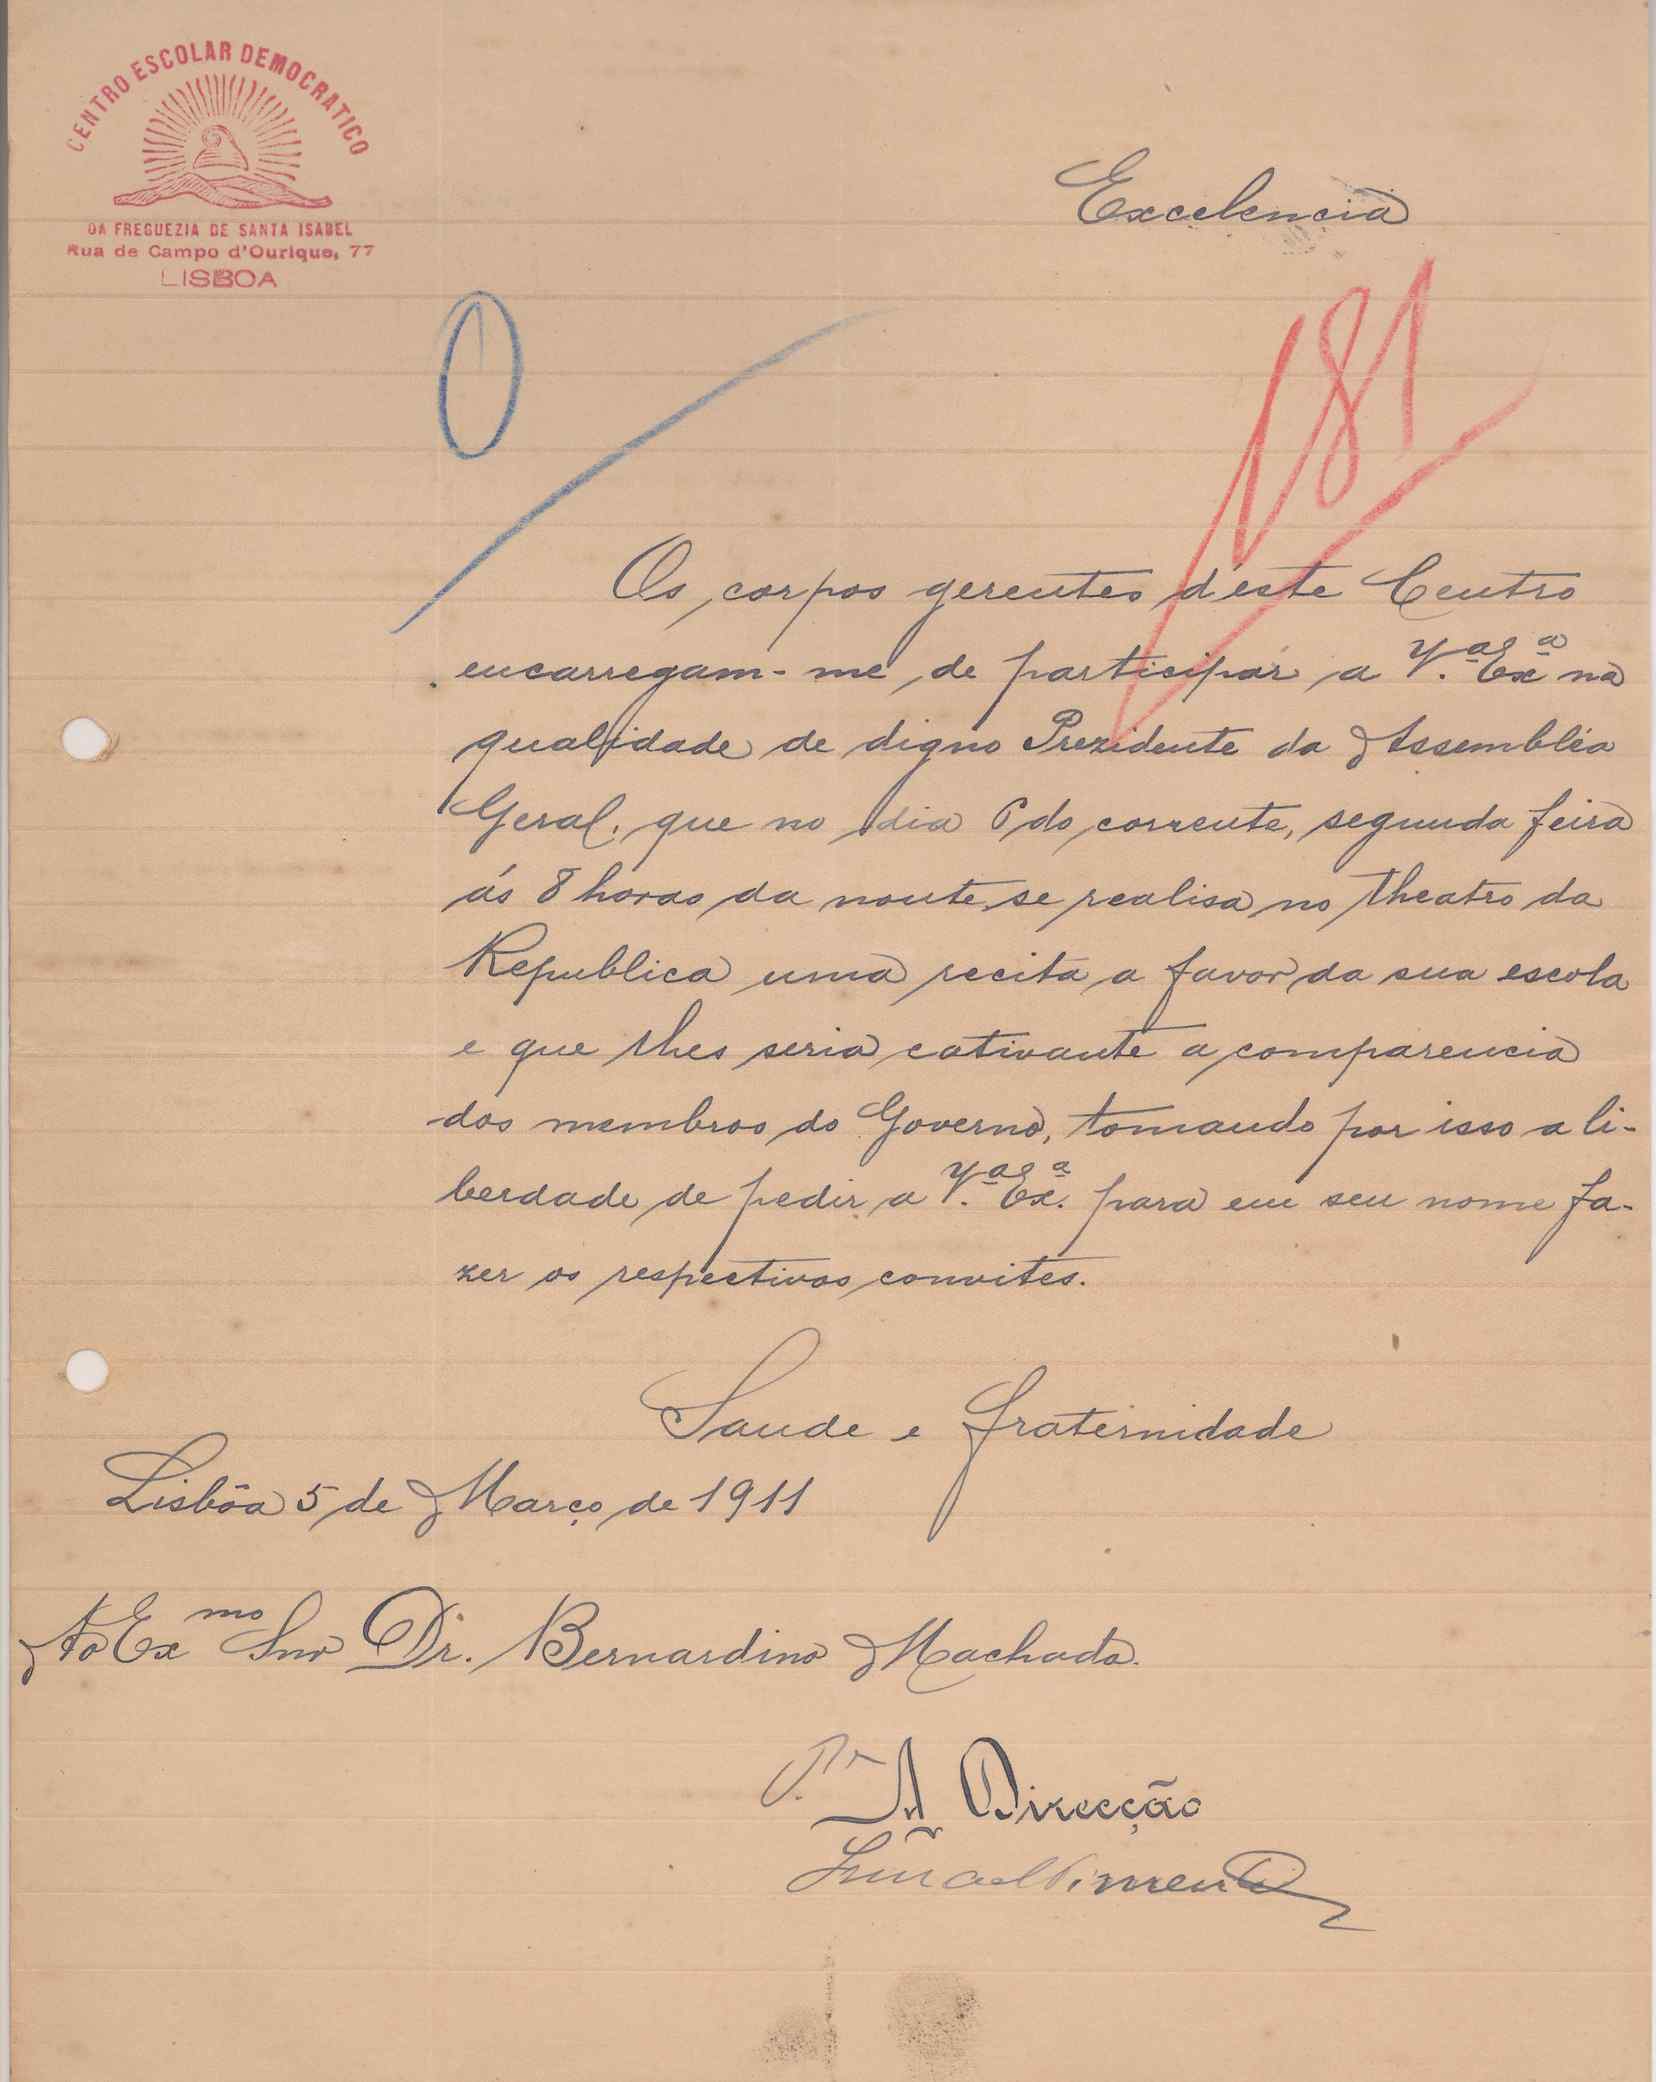 CENTRO ESCOLAR DEMOCRATICO
DA FREGUEZIA DE SANTA ISABEL
Rua de Campo d'Ourique, 77
LISBOA
Excelencia
0
181
Os corpos gerentes d'éste Centro
encarregam-me de participar a V.ª Ex.ª na
qualidade de digno Prezidente da Assembléa
Geral, que no dia 6 do corrente, segunda feira
ás 8 horas da noute, se realisa no theatro da
Republica uma recita a favor da sua escola
e que lhes seria cativante a comparencia
dos membros do Governo, tomando por isso a li-
berdade de pedir a V.ª Ex.ª para em seu nome fa-
zer os respectivos convites.
Saude e fraternidade
Lisbôa 5 de Março de 1911
Ao Exmo Snr Dr. Bernardino Machado.
P.r A Direcção